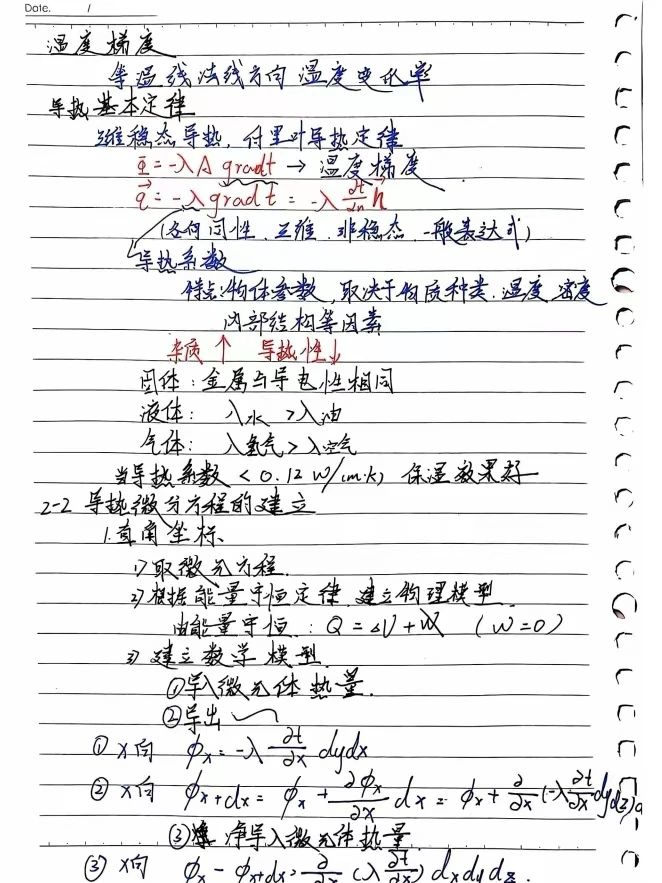 Date. /
温度梯度
等温线法线方向温度变化率
导热基本定律
三维稳态导热,付里叶导热定律
Φ = -λA gradt → 温度梯度
q⃗ = -λ gradt = -λ ∂t/∂n n⃗
(各向同性、三维、非稳态、一般表达式)
导热系数
特点:物体参数,取决于物质种类、温度 密度
内部结构等因素
杂质↑ 导热性↓
固体:金属与导电性相同
液体: λ水 > λ油
气体: λ氢气 > λ空气
当导热系数 < 0.12 W/(m·k) 保温效果好
2-2 导热微分方程的建立
1.直角坐标
1)取微元方程.
2)根据能量守恒定律 建立物理模型.
由能量守恒: Q = ΔU + W (W=0)
3)建立数学模型.
①导入微元体热量.
②导出
① x向 ϕx = -λ ∂t/∂x dydx
② x向 ϕx+dx = ϕx + ∂ϕx/∂x dx = ϕx + ∂/∂x (-λ ∂t/∂x dydz)d
③ 净导入微元体热量
③ x向 ϕx - ϕx+dx = ∂/∂x (λ ∂t/∂x) dxdydz.